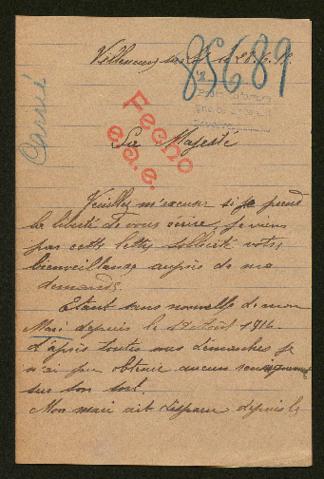 85689
Carné
Fecho
p.d.e.
Sa Majesté
Veuillez m'excuser si je prend
la liberté de vous écrire, je viens
par cette lettre sollicité votre
bienveillance auprès de ma
demande.
Etant sans nouvelle de mon
Mari depuis le août 1916.
d'apsès toutes mes démarches je
n'ai pu obtenir aucun renseignement
sur son sort.
Mon mari ait disparu depuis le